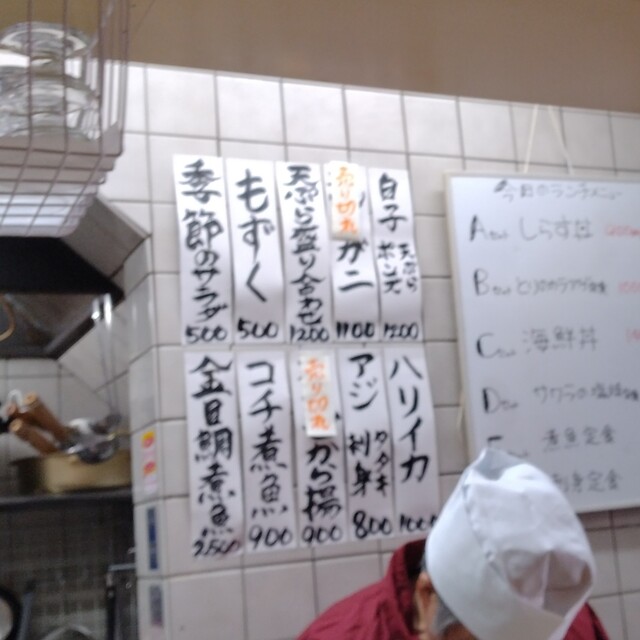 白子 天ぷら ポン酢 1200
売り切れ
ガニ 1100
天ぷら盛り合わせ 1200
もずく 500
季節のサラダ 500
ハリイカ 1000
アジ タタキ 刺身 800
売り切れ
から揚 900
コチ煮魚 900
金目鯛煮魚 2500
今日のランチメニュー
A しらす丼
B とりのから揚
C 海鮮丼
D サワラの塩焼
煮魚定食
刺身定食